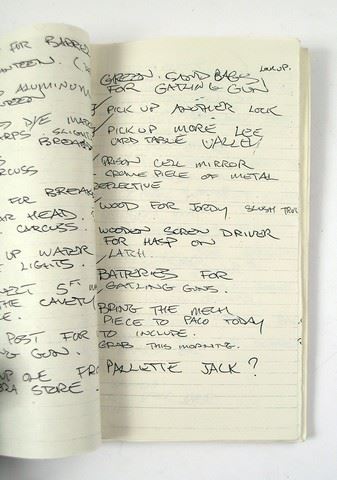 FOR BARRE
NTEEN.
ALUMINUM
NTEEN
DIE MAR
ARPS SLIGHT
BREAKD
CUSS
FOR BREAK
R HEAD.
CARCUSS
UP WATER
LIGHTS.
VERT 5TH
THE CAVETY
POST FOR
NG GUN.
UP ONE FRO
RA STORE.
GREEN. SAND BAGS LOOK UP.
FOR GATLING GUN
PICK UP ANOTHER LOCK
PICK UP MORE LEE
CARD TABLE VALLEY
PRISON CELL MIRROR
CROME PIECE OF METAL
REFLECTIVE
WOOD FOR JORDY SLUSH TRU
WOODEN SCREW DRIVER
FOR HASP ON
LATCH.
BATTERIES FOR
GATLING GUNS.
BRING THE MECH
PIECE TO PACO TODAY
TO INCLUDE.
GRAB THIS MORNING.
PALLETTE JACK?